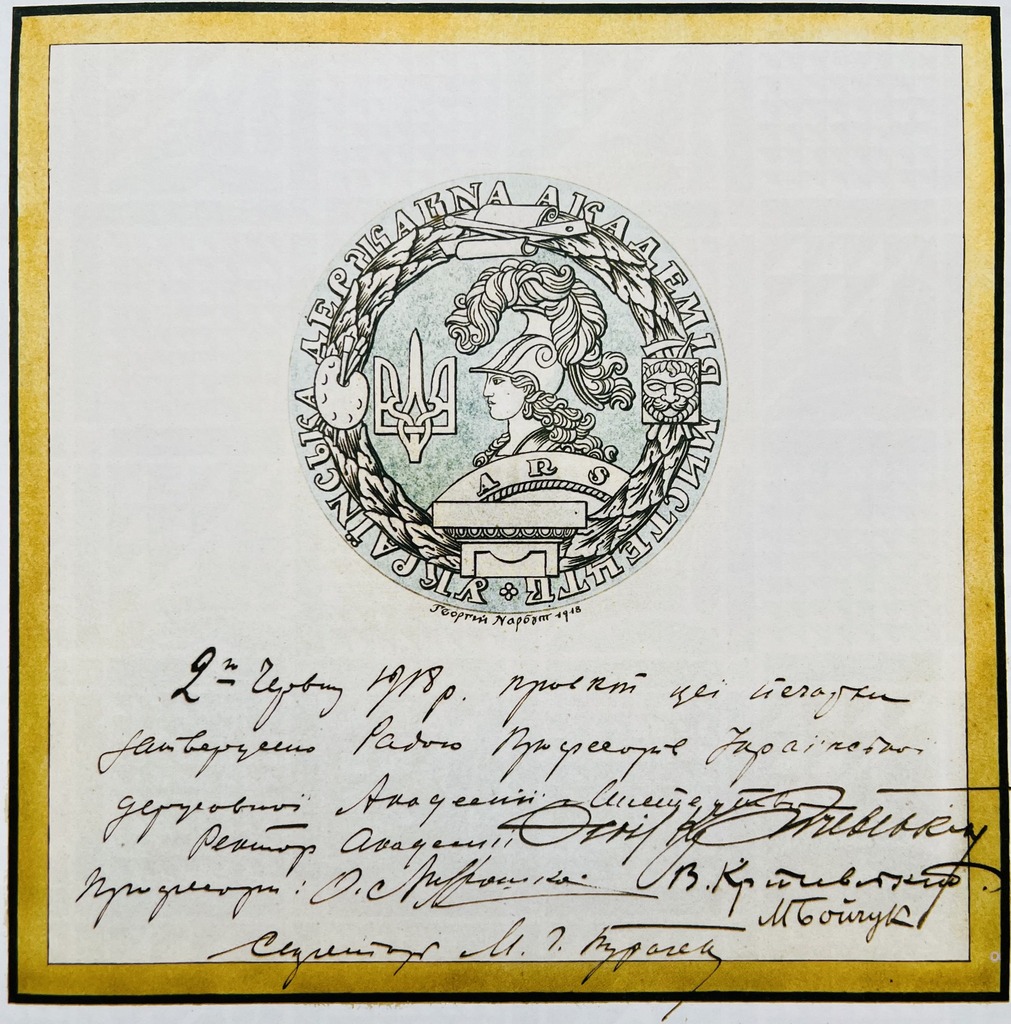 УКРАЇНСЬКА ДЕРЖАВНА АКАДЕМІЯ МИСТЕЦТВ
ARS
Георгий Нарбут 1918
2го Червня 1918 р. проєкт цеї печатки
затверджено Радою Професорів Української
державної Академії Мистецтв
Ректор Академії
Професори: О. Мурашко В. Кричевський
М Бойчук
Секретар М. Г. Бурачек